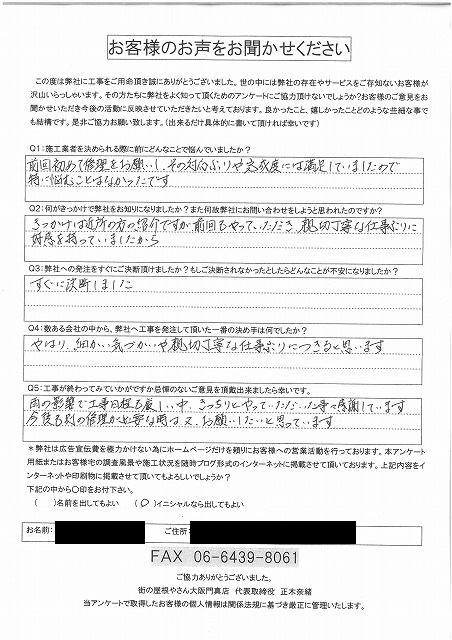 お客様のお声をお聞かせください
この度は弊社に工事をご用命頂き誠にありがとうございました。世の中には弊社の存在やサービスをご存知ないお客様が
沢山いらっしゃいます。その方たちに弊社をよく知って頂くためのアンケートにご協力頂けないでしょうか?お客様のご意見をお
聞かせいただき今後の活動に反映させていただきたいと考えております。良かったこと、嬉しかったことどのような些細な事で
も結構です。是非ご協力お願い致します。(出来るだけ具体的に書いて頂ければ幸いです)
Q1:施工業者を決められる際に前にどんなことで悩んでいましたか?
前回初めて修理をお願いし、その対応ぶりや完成度には満足していましたので
特に悩むことはなかったです
Q2:何がきっかけで弊社をお知りになりましたか?また何故弊社にお問い合わせをしようと思われたのですか?
きっかけは近所の方の紹介ですが前回もやっていただき、親切丁寧な仕事ぶりに
好感を持っていましたから
Q3:弊社への発注をすぐにご決断頂けましたか?もしご決断されなかったとしたらどんなことが不安になりましたか?
すぐに決断しました
Q4:数ある会社の中から、弊社へ工事を発注して頂いた一番の決め手は何でしたか?
やはり、細かい気づかいや親切丁寧な仕事ぶりにつきると思います
Q5:工事が終わってみていかがですか忌憚のないご意見を頂戴出来ましたら幸いです。
雨の影響で工事日程も厳しい中、きっちりとやっていただいた事に感謝しています
今後も別の修理が必要な時はまた、お願いしたいと思っています
*弊社は広告宣伝費を極力かけない為にホームページだけを頼りにお客様への営業活動を行っております。本アンケート
用紙またはお客様宅の調査風景や施工状況を随時ブログ形式のインターネットに掲載させて頂いております。上記内容をイ
ンターネットや印刷物に掲載させて頂いてもよろしいでしょうか?
下記の中から〇印をお付下さい。
( )名前を出してもよい (○)イニシャルなら出してもよい
お名前: ご住所:
FAX 06-6439-8061
ご協力ありがとうございました。
街の屋根やさん大阪門真店 代表取締役 正木奈緒
当アンケートで取得したお客様の個人情報は関係法規に基づき厳正に管理いたします。